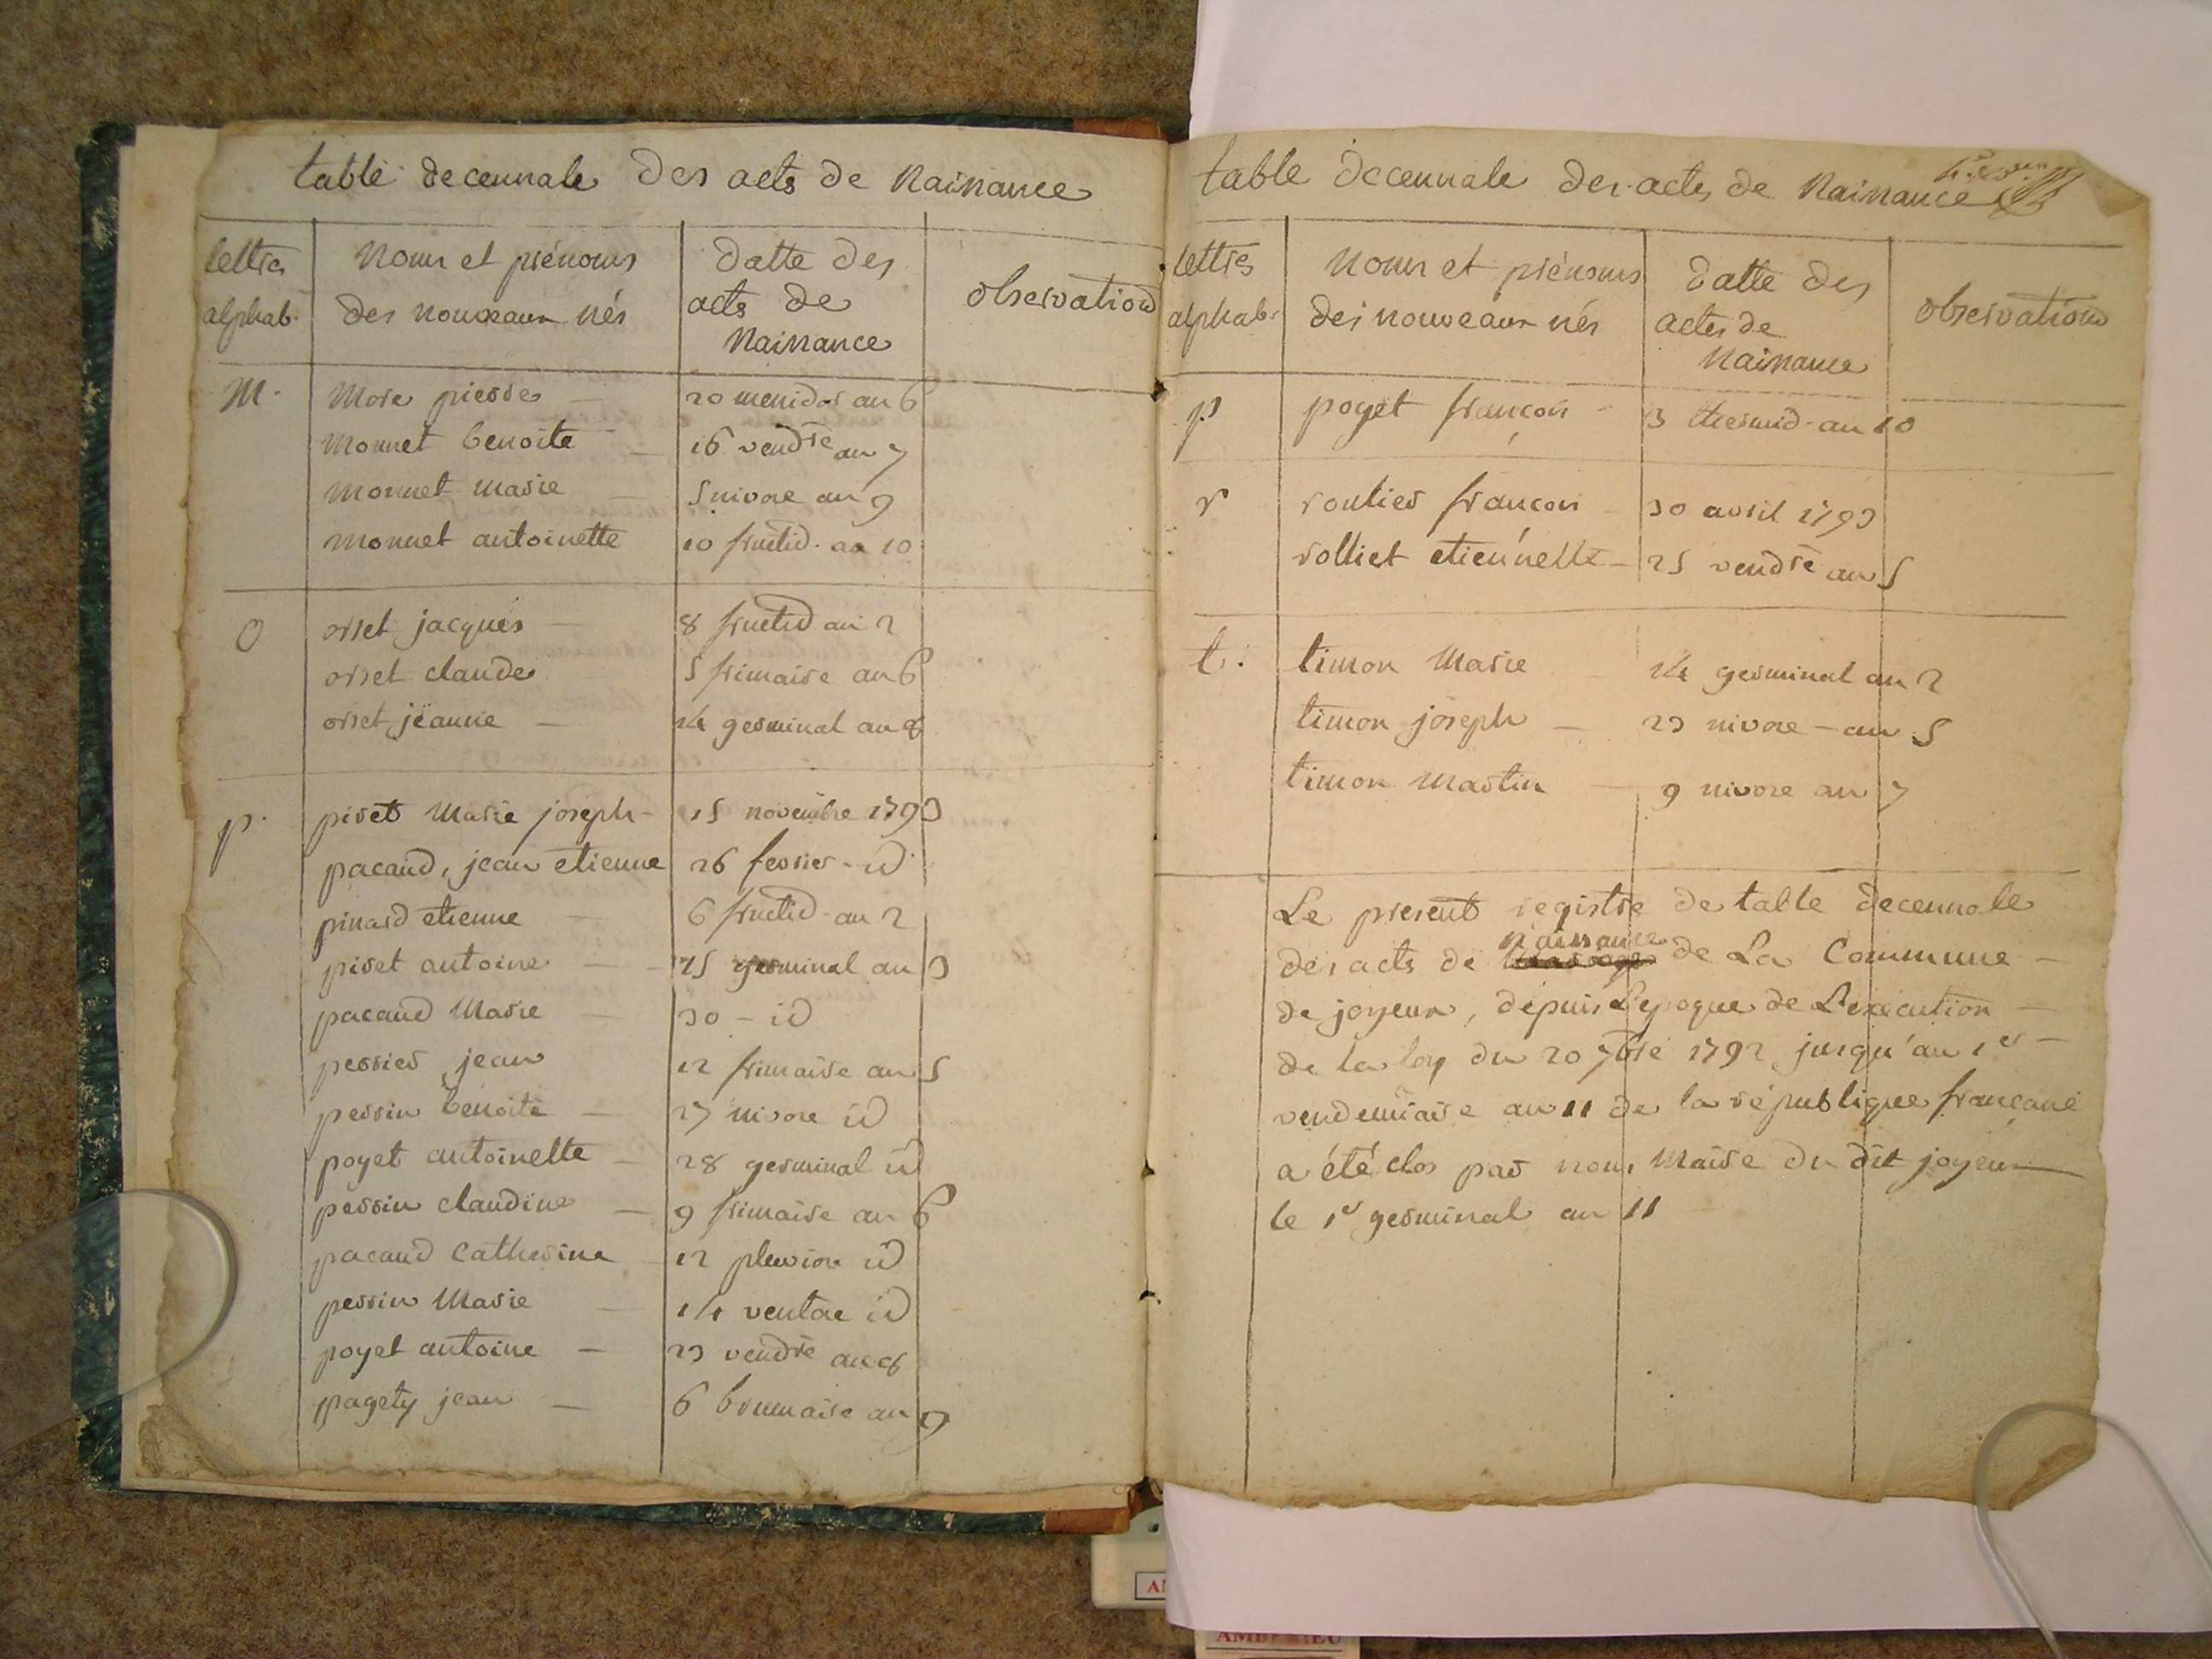 table decennale des acts de Naissance
lettres alphab.
Noms et prénoms des nouveaux nés
datte des acts de Naissance
observations
M. More pierre — 20 messidor an 6
Monnet benoite — 16 vend.re an 7
Monnet Marie — 5 nivose an 9
Monnet antoinette 10 fructid. an 10
O orset jacques — 8 fructid an 2
orset claude 5 frimaire an 6
orset jeanne — 14 germinal an 8
p. piret Marie joseph — 15 novembre 1793
pacaud, jean etienne 26 fevrier - id.
pinard etienne — 6 fructid - an 2
piret antoine — 25 germinal an 3
pacaud Marie — 30 - id
perrier jean 12 frimaire an 5
perrin benoite — 27 nivose id
poyet antoinette — 28 germinal id
perrin claudine — 9 frimaire an 6
pacaud Catherine — 12 pluviose id
perrin Marie — 14 ventose id
poyet antoine — 23 vend.re an 8
pagety jean — 6 brumaire an 9
table decennale des actes de Naissance
lettres alphab.
Noms et prénoms des nouveaux nés
datte des actes de Naissance
observations
p poyet françois - 3 thermid. an 10
r routier françois - 30 avril 1793
rolliet etiennette - 25 vend.re an 5
t. timon Marie — 14 germinal an 2
timon joseph — 23 nivose - an 5
timon Martin — 9 nivose an 7
Le present registre de table decennale
naissance
des acts de de La Commune —
de joyeux, depuis L'epoque de L'execution —
de la loy du 20 7bre 1792 jusqu'au 1er —
vendemiaire an 11 de la république francaise
a été clos par nous Maire du dit joyeux
le 1er germinal an 11